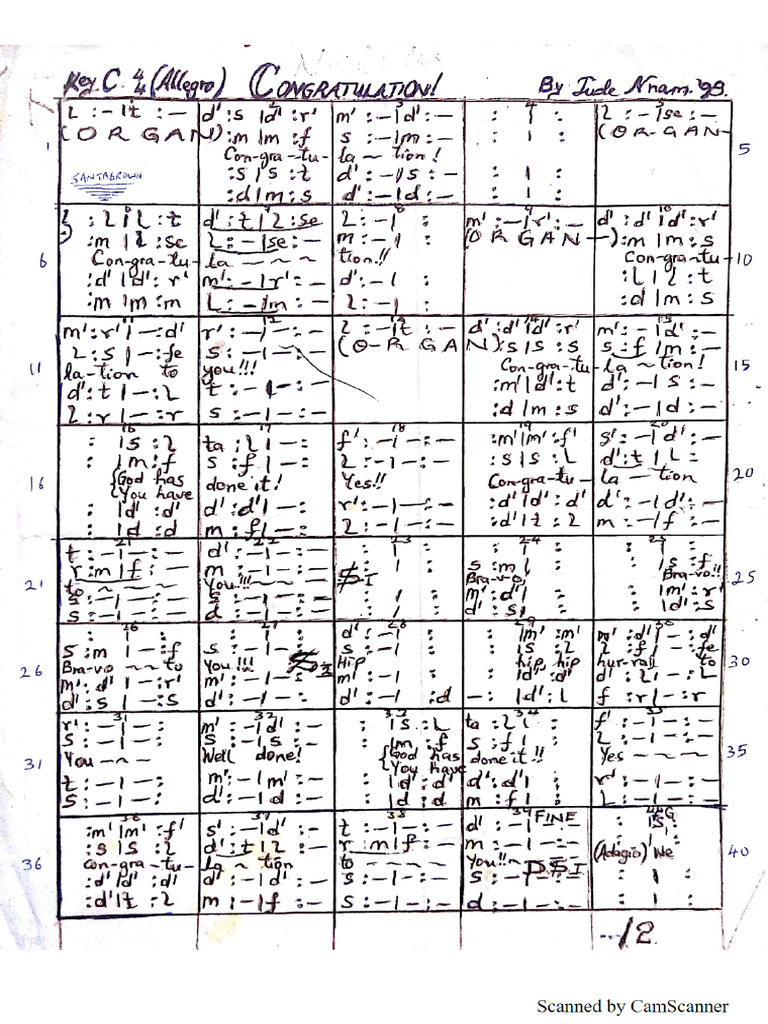 Key C. 4/4 (Allegro) CONGRATULATION! By Jude Nnam '99.
1 2 3 4 5
L :- | t :- d' :s | d' :r' m' :- | d' :- : | : L :- | se :-
(ORGAN) :m | m :f s :- | m :- : | : (ORGAN-
Con-gra-tu- la ~ tion!
SANTABROWN :s | s :t d' :- | s :- : | :
:d | m :s d' :- | d :- : | :
6 7 8 9 10
l :L | L :t d' :t | l :se L :- | : m' :- | r' :- d' :d' | d' :r'
:m | L :se L :- | se :- m :- | : (ORGAN-) :m | m :s
Con-gra-tu- la ~ ~ ~ tion!! Con-gra-tu-
:d' | d' :r' m' :- | r' :- d' :- | : :L | L :t
:m | m :m L :- | m :- L :- | : :d | m :s
11 12 13 14 15
m' :r' | - :d' r' :- | - :- L :- | t :- d' :d' | d' :r' m' :- | d' :-
L :s | - :fe s :- | - :- (O-RGAN) :s | s :s s :f | m :-
la-tion to you!!! Con-gra-tu- la ~ tion!
d' :t | - :L t :- | - :m' | d' :t d' :- | s :-
L :r | - :r s :- | - :- :d | m :s d' :- | d :-
16 17 18 19 20
: | s :l ta :L | - : f' :- | - :- :m' | m' :f' s' :- | d' :-
: | m :f s :f | - : L :- | - :- :s | s :L d' :t | L :-
{God has done it! Yes!! Con-gra-tu- la ~ tion
{You have
: | d' :d' d' :d' | - : r' :- | - :- :d' | d' :d' d' :- | d' :-
: | d :d m :f | - : L :- | - :- :d' | t :l m :- | f :-
21 22 23 24 25
t :- | - :- d' :- | - :- : | : : | : : | :
r :m | f :- m :- | - :- : | : s :m | : : | s :f
to ~ ~ ~ you!!! ~ ~ ~ $I Bra-vo, Bra-vo!!
s :- | - :- s :- | - :- : | : m' :d' | : | m' :r'
s :- | - :- d :- | - :- : | : d' :s | : | d' :s
26 27 28 29 30
s :m | - :f s :- | - : s :- | - : : | s :l l :f | - :fe
Bra-vo ~ ~ to you!!! Hip hip hip hur-rah to
m' :d' | - :r' m' :- | - : m' :- | - : d' :L | - :L
d' :s | - :s d' :- | - : d' :- | :d - : | d' :L f :r | - :r
31 32 33 34 35
r' :- | - :- m' :- | d' :- : | s :L ta :L | - : f' :- | - :-
s :- | - :- s :- | s :- : | m :f s :f | - : L :- | - :-
You ~ ~ ~ Well done! {God has done it!! Yes ~ ~ ~
{You have
t :- | - :- m' :- | m' :- : | d' :d' d' :d' | - : r' :- | - :-
s :- | - :- d' :- | d :- : | d :d m :f | - : L :- | - :-
36 37 38 39 40
:m' | m' :f' s' :- | d' :- t :- | - :- d' :- | FINE G
:s | s :l d' :t | l :- r :m | f :- m :- | - :- : | S
con-gra-tu- la ~ tion to ~ ~ ~ you!! ~ (Adagio) We
:d' | d' :d' d' :- | d' :- s :- | - :- s :- | D$I
:d' | t :l m :- | f :- s :- | - :- d :- | - :-
--- 12.
Scanned by CamScanner